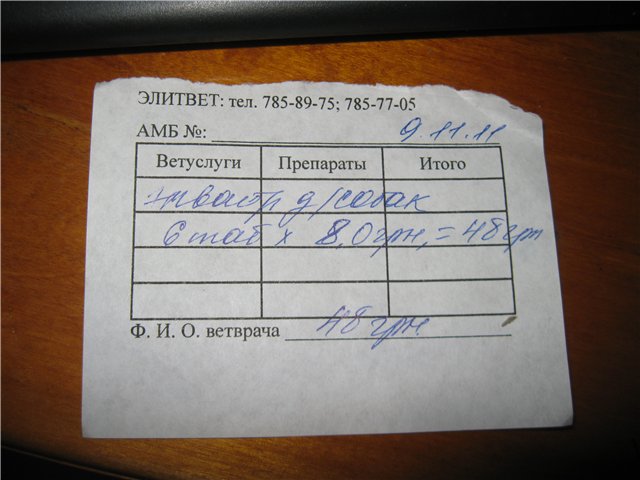 ЭЛИТВЕТ: тел. 785-89-75; 785-77-05
АМБ №: 9.11.11
Ветуслуги Препараты Итого
д/собак
6 таб х 8,0 грн, = 48 грн
Ф. И. О. ветврача 48 грн.